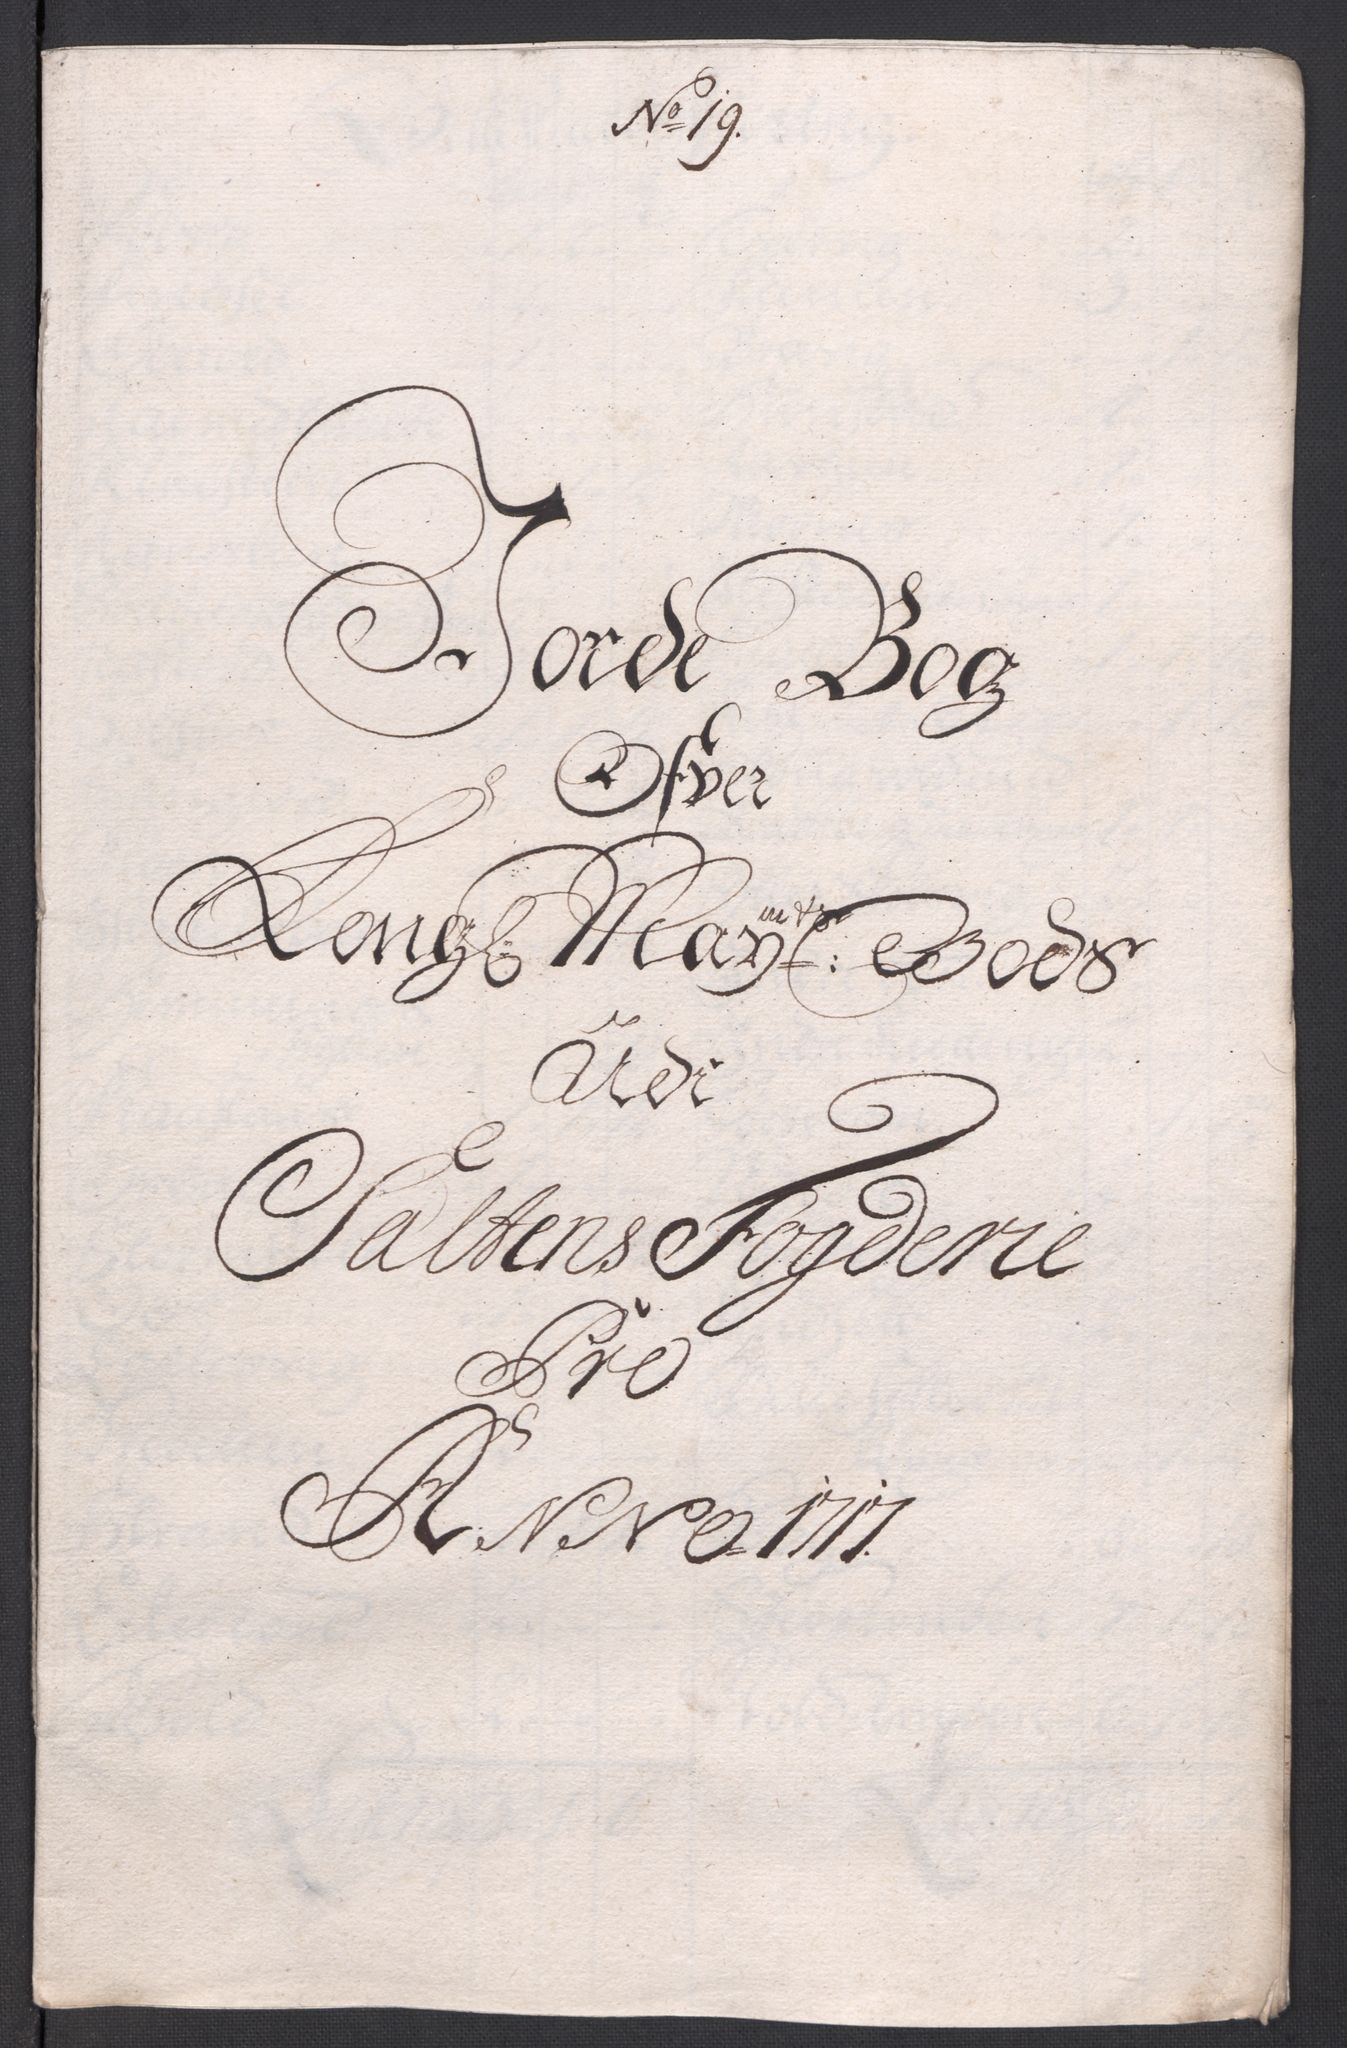 No 19.
Jorde Bog
Ofver
Kongl: Mayts: Gods
Udi
Saltens Fogderie
Pro
ANNO 1717.